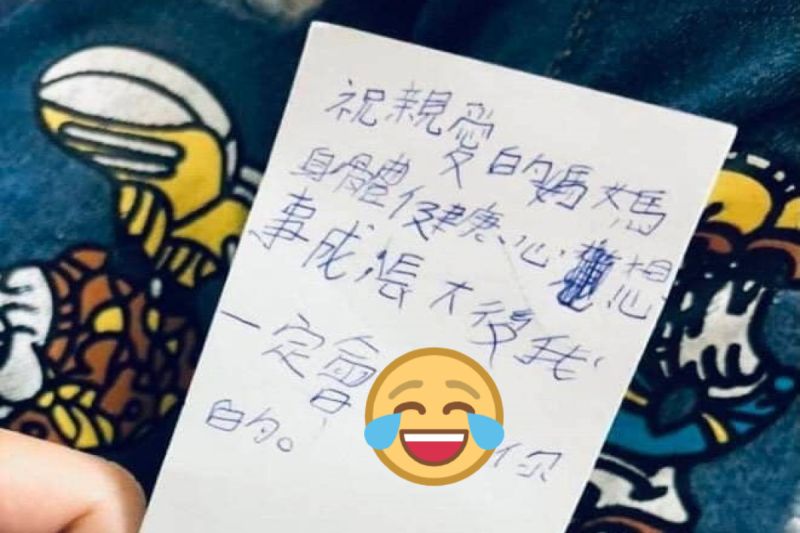 祝親愛的媽媽
身體健康、心想
事成,長大後我
一定會你
的。